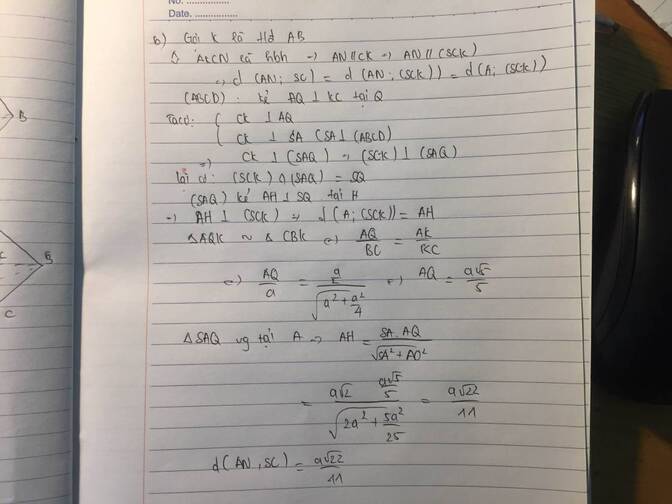 No. ..............
Date. ..............
b) Gọi K là tđ AB
◊ AKCN là hbh → AN // CK → AN // (SCK)
→ d (AN; SC) = d (AN; (SCK)) = d(A; (SCK))
(ABCD): kẻ AQ ⊥ KC tại Q
Ta có: { CK ⊥ AQ
CK ⊥ SA (SA ⊥ (ABCD)
=) CK ⊥ (SAQ) → (SCK) ⊥ (SAQ)
lại có: (SCK) ∩ (SAQ) = SQ
(SAQ) kẻ AH ⊥ SQ tại H
→ AH ⊥ (SCK) → d(A; (SCK)) = AH
ΔAQK ~ ΔCBK (=) AQ/BC = AK/KC
(=) AQ/a = (a/2)/√(a² + a²/4) (=) AQ = a√5/5
ΔSAQ vg tại A → AH = SA.AQ/√(SA² + AQ²)
= (a√2 a√5/5)/√(2a² + 5a²/25) = a√22/11
d(AN, SC) = a√22/11
B
B
C